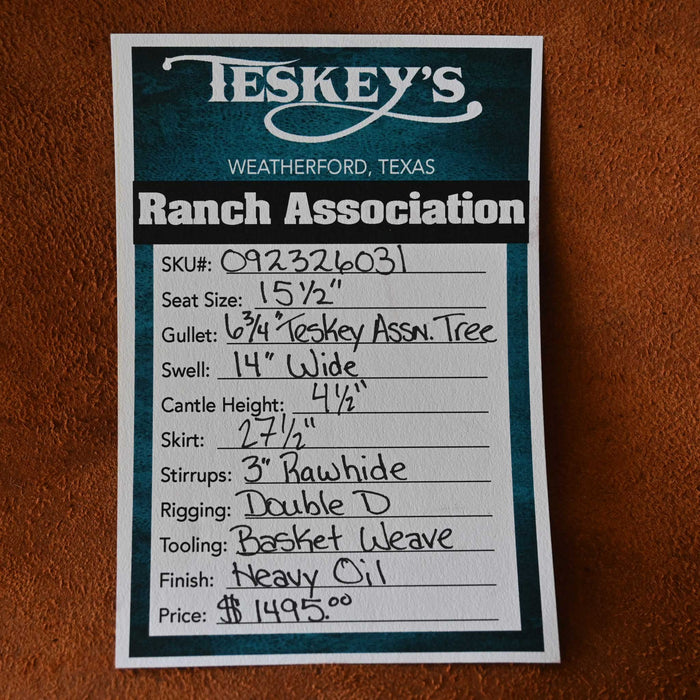 TESKEY'S
WEATHERFORD, TEXAS
Ranch Association
SKU#: 092326031
Seat Size: 15 1/2"
Gullet: 6 3/4" Teskey Assn. Tree
Swell: 14" Wide
Cantle Height: 4 1/2"
Skirt: 27 1/2"
Stirrups: 3" Rawhide
Rigging: Double D
Tooling: Basket Weave
Finish: Heavy Oil
Price: $1495.00